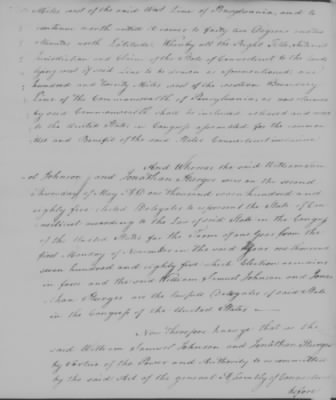 Miles west of the said West Line of Pensylvania, and to
continue north until it comes to forty two Degrees and two
Minutes north Latitude. Whereby all the Right, Title, Interest
Jurisdiction and Claim of the State of Connecticut to the Lands
lying west of said Line to be drawn as aforementioned, one
hundred and twenty Miles west of the western Boundary
Line of the Commonwealth of Pensylvania, as now claimed
by said Commonwealth shall be included released and ceded
to the United States in Congress assembled for the common
Use and Benefit of the said States Connecticut inclusive
And Whereas the said William Samu
el Johnson and Jonathan Sturges were on the second
Thursday of May AD one thousand seven hundred and
eighty five elected Delegates to represent the State of Con
necticut according to the Law of said State in the Congress
of the United States for the Term of one Year from the
first Monday of November in the said Year one thousand
seven hundred and eighty five which Election remains
in force and the said William Samuel Johnson and Jona
than Sturges are the lawfull Delegates of said State
in the Congress of the United States
Now therefore know ye that we the
said William Samuel Johnson and Jonathan Sturges
by virtue of the Power and Authority to us committed
by the said Act of the general Assembly of Connecticut
before